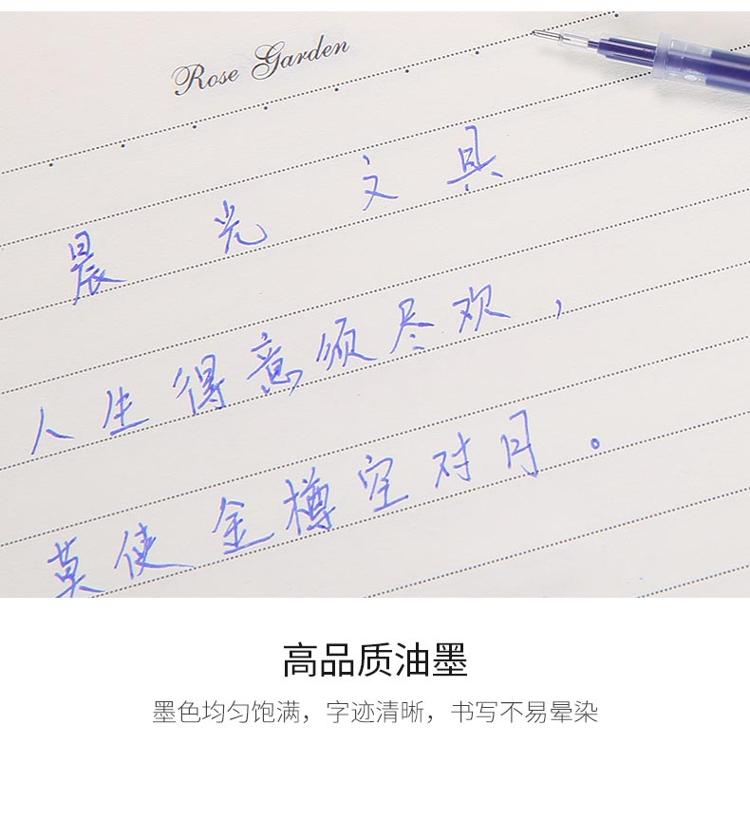 Rose Garden
晨光文具
人生得意须尽欢，
莫使金樽空对月。
高品质油墨
墨色均匀饱满，字迹清晰，书写不易晕染